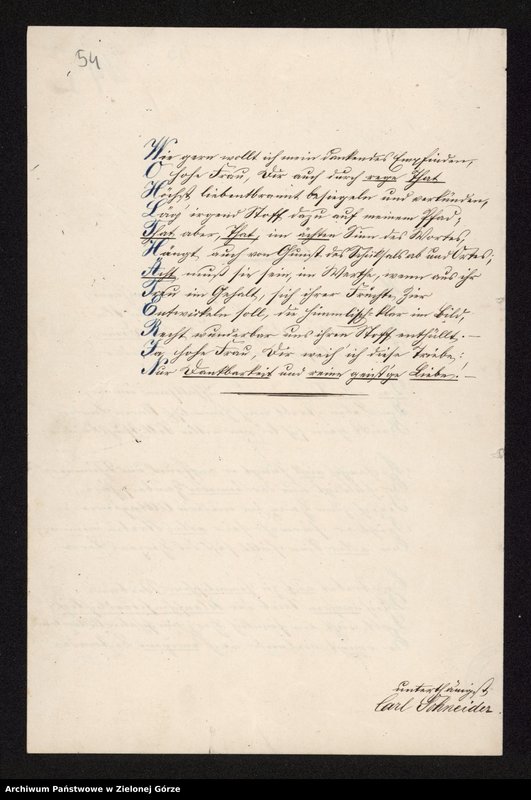 54
Wie gern wollt ich mein dankendes Empfinden,
O hohe Frau, Dir auch durch rege That
Höchst liebentbrannt besiegeln und verkünden,
Läg' irgend Stoff dazu auf meinem Pfad;
That aber, That, im ächten Sinn des Wortes,
Hängt auch von Gunst des Schicksals ab und Ortes;
Acht muß sie sein, im Werthe, wenn aus ihr
Treu im Gehalt, sich ihrer Früchte Zier
Entwickeln soll, die himmlisch klar im Bild,
Recht wunderbar uns ihren Stoff enthüllt. —
Ja, hohe Frau, Dir weih ich diese Triebe:
Nur Dankbarkeit und reine geist'ge Liebe! —
unterthänigst
Carl Schneider.
Archiwum Państwowe w Zielonej Górze